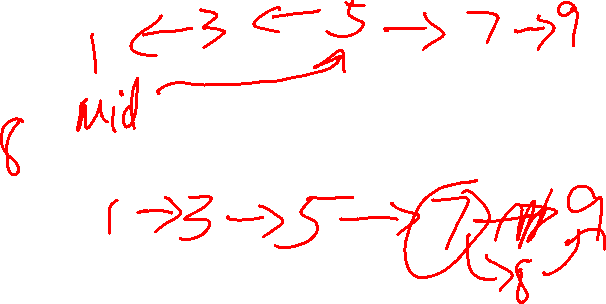 1 ← 3 ← 5 → 7 → 9
Mid
8
1 → 3 → 5 → 7 → 9
8